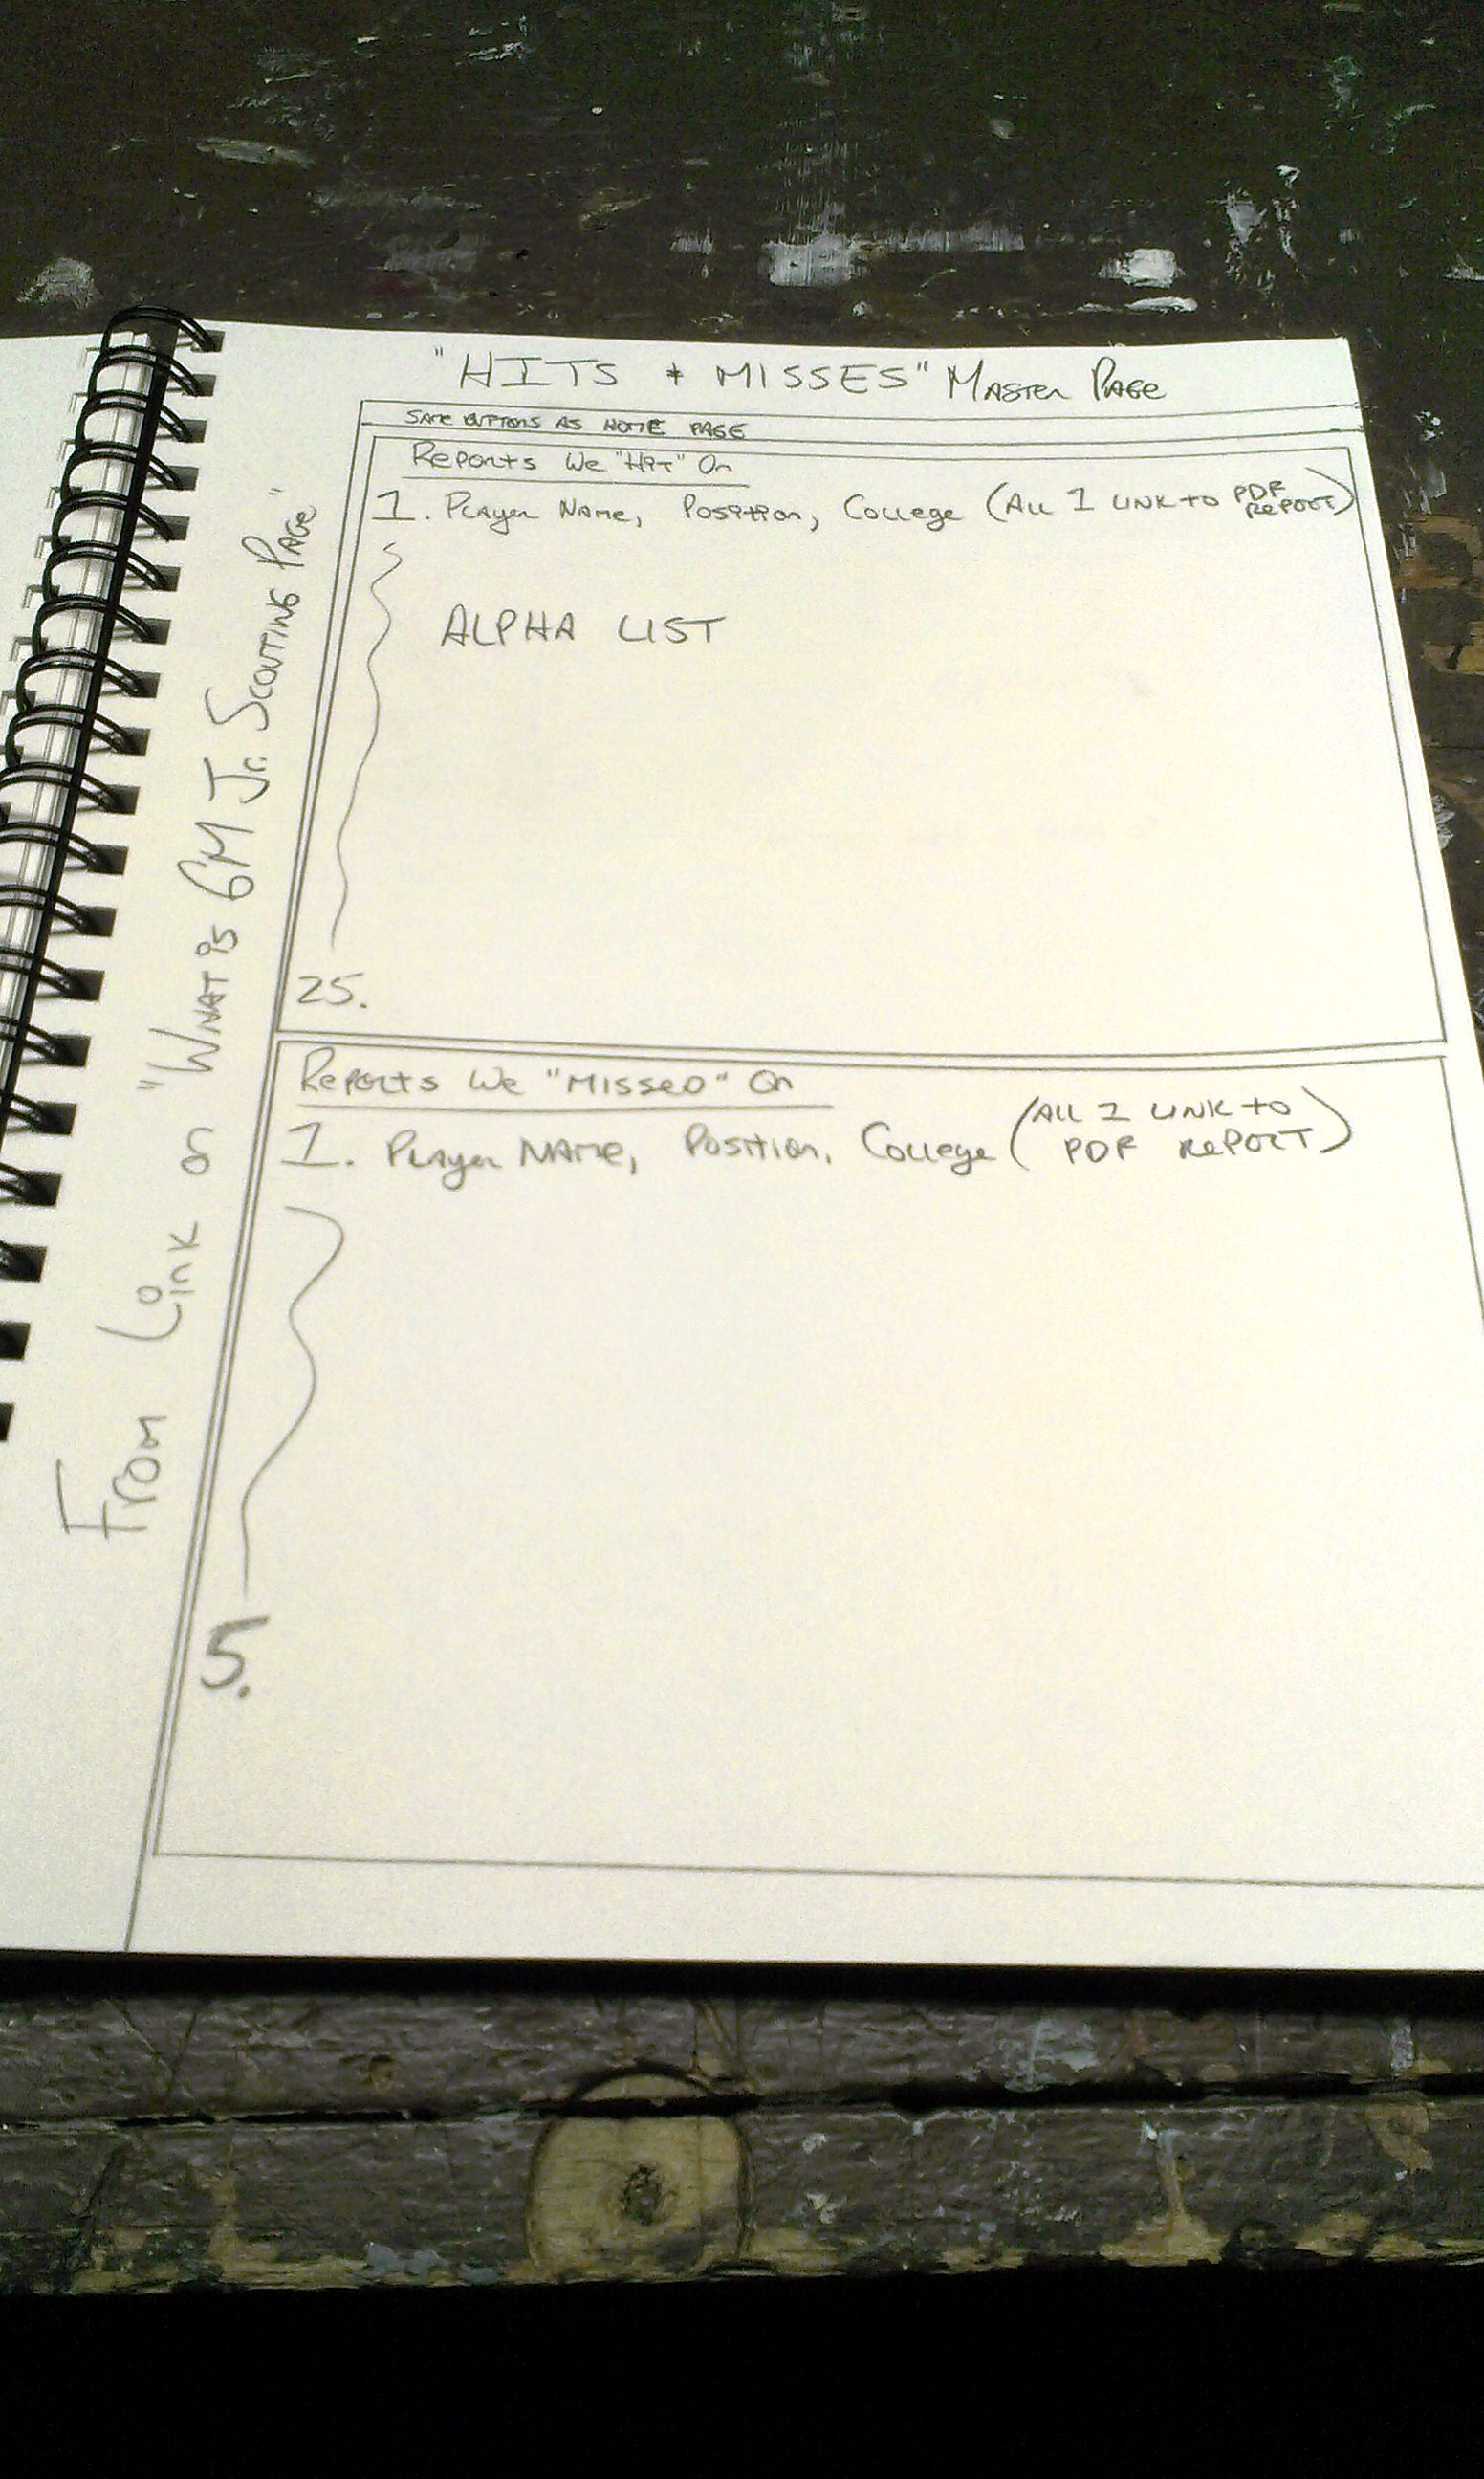 "HITS + MISSES" MASTER PAGE
SAME BUTTONS AS HOME PAGE
Reports We "HIT" On
1. Player Name, Position, College (All 1 LINK to PDF REPORT)
ALPHA LIST
25.
Reports We "MISSED" On
1. Player NAME, Position, College (ALL 1 LINK to PDF REPORT)
5.
From Link on "What is GM Jr. Scouting Page"